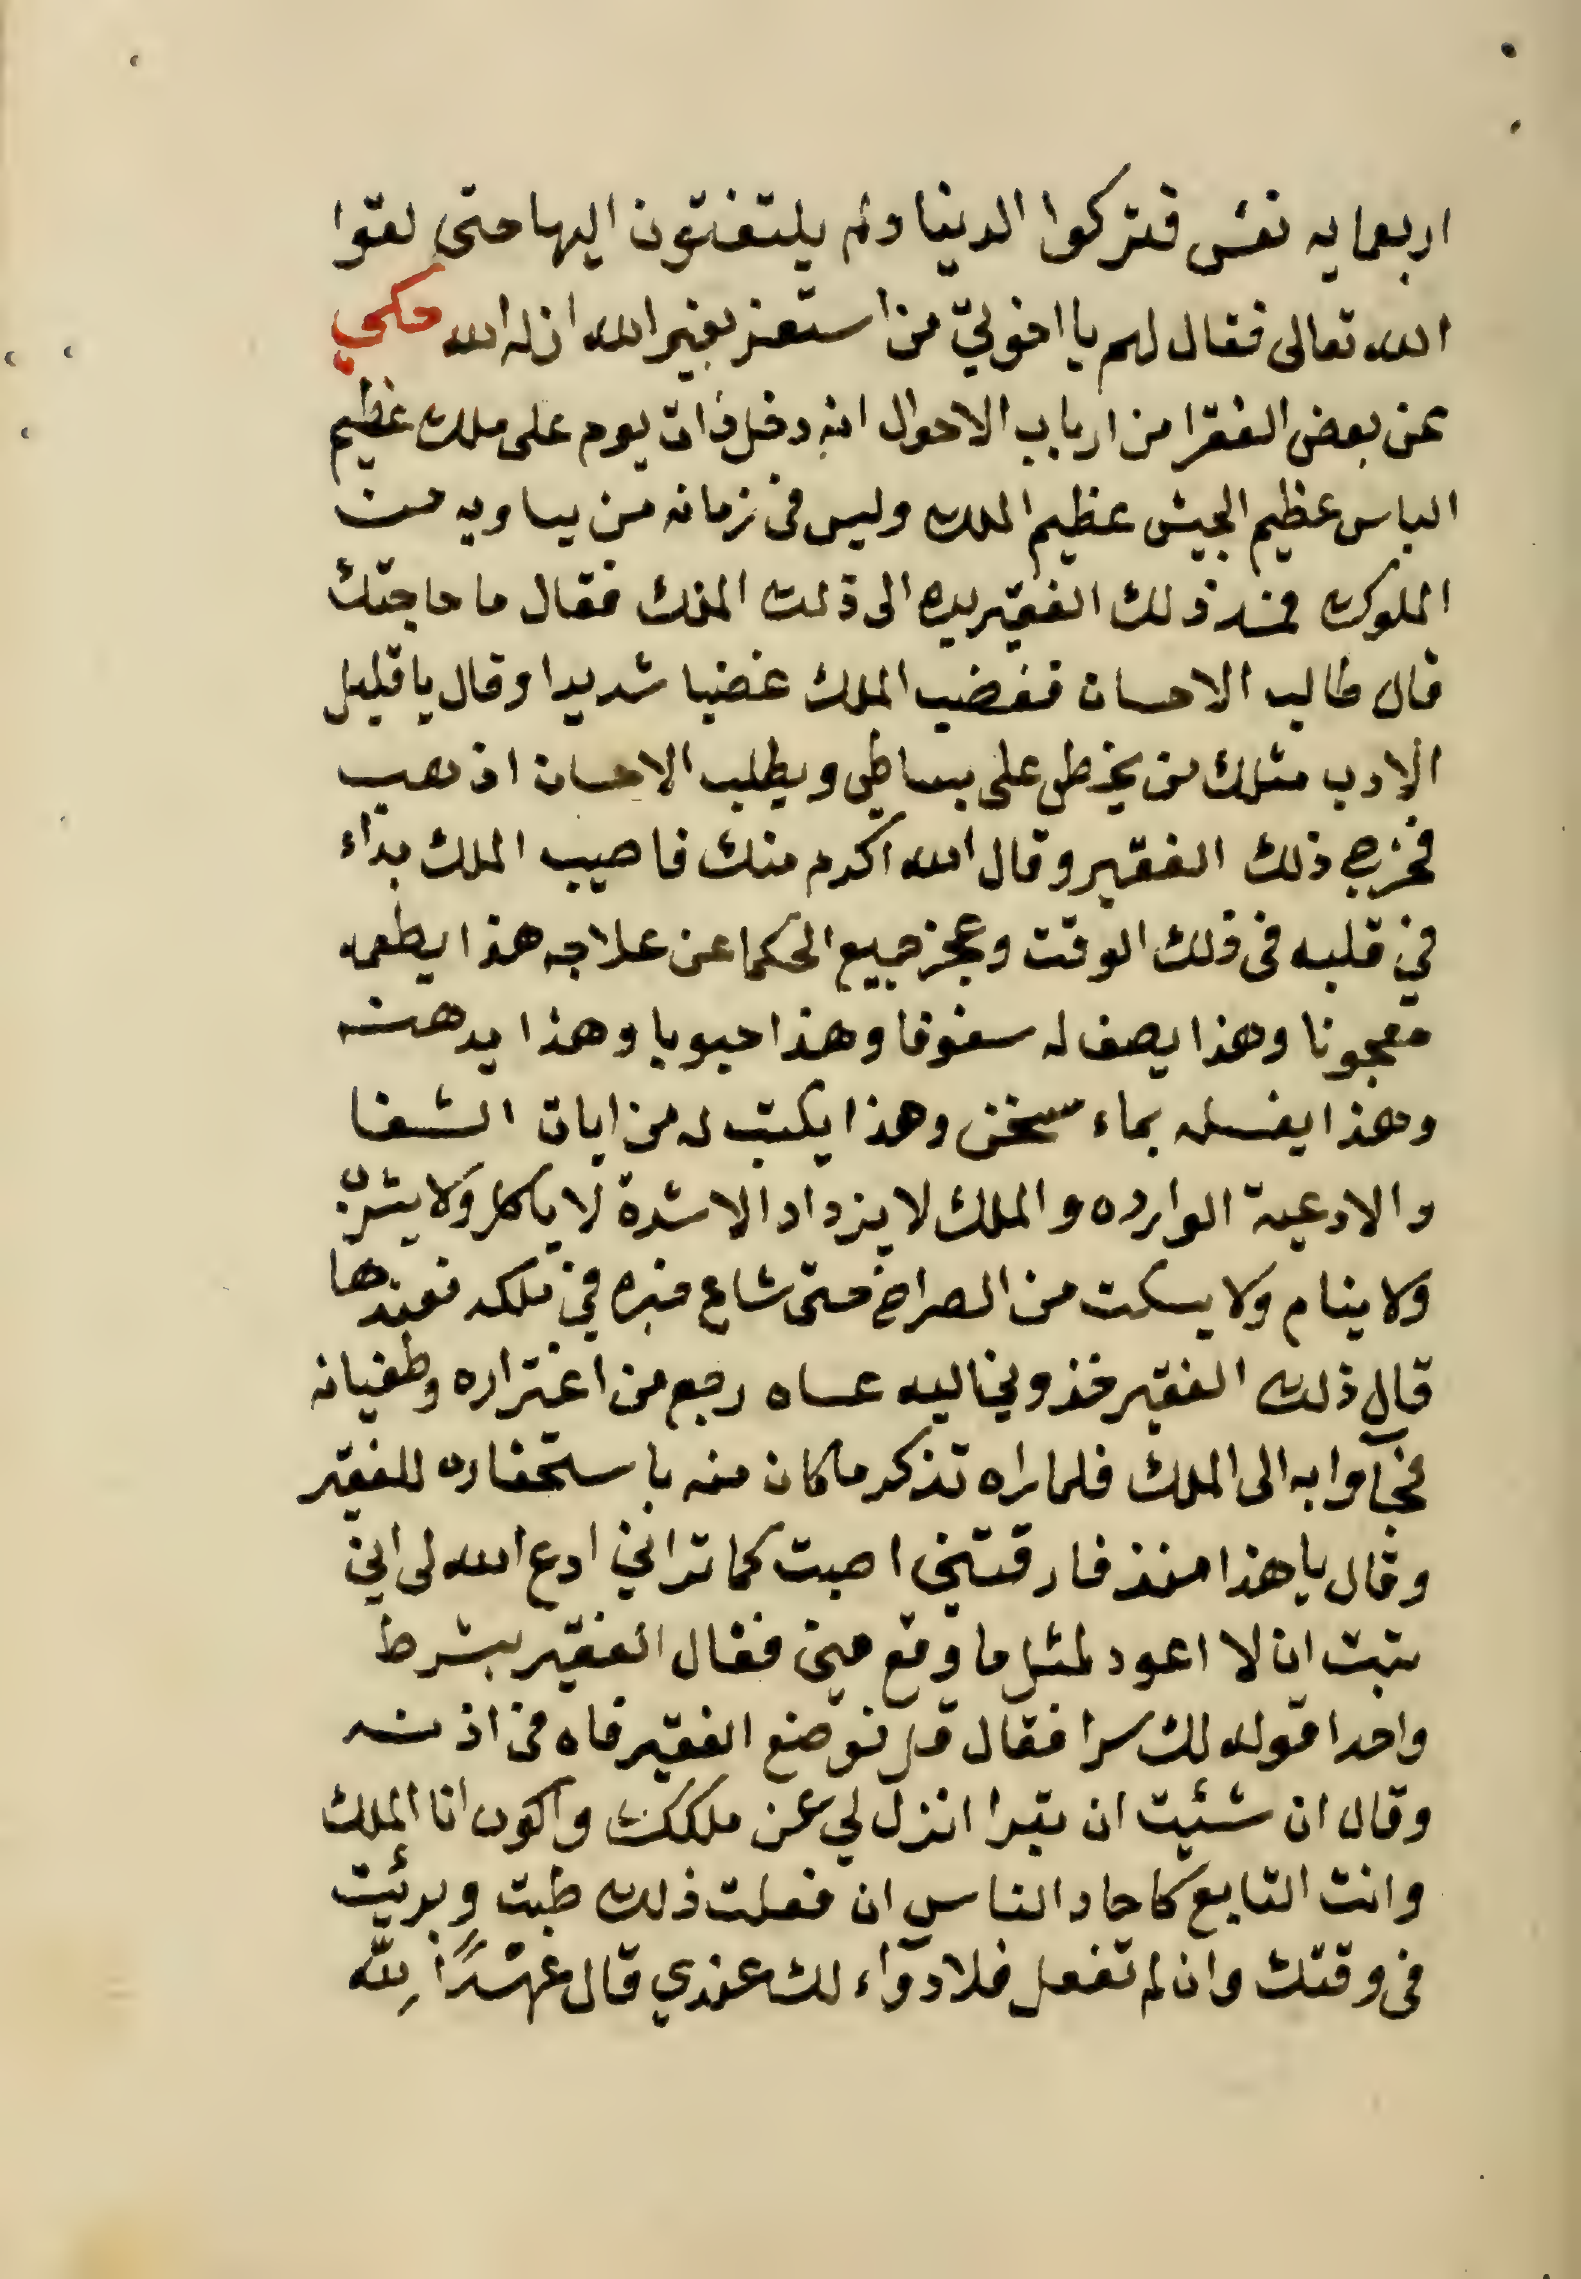 اربعمايه نفس فتركوا الدنيا ولم يلتفتون اليها حتى لقوا
الله تعالى فقال لهم يا اخوتي من استعز بغير الله اذله الله حكي
عن بعض الفقرا من ارباب الاحوال انه دخل ذات يوم على ملك عظيم
الباس عظيم الجيش عظيم الملك وليس فى زمانه من يساويه من
الملوك فمد ذلك الفقير يده الى ذلك الملك فقال ما حاجتك
قال طالب الاحسان فغضب الملك غضبا شديدا وقال يا قليل
الادب مثلك من يخطى على بساطى ويطلب الاحسان اذهب
فخرج ذلك الفقير وقال الله اكرم منك فاصيب الملك بداء
في قلبه فى ذلك الوقت وعجز جميع الحكما عن علاجه هذا يطعمه
معجونا وهذا يصف له سفوفا وهذا حبوبا وهذا يدهنه
وهذا يغسله بماء سخن وهذا يكتب له من ايات الشفا
والادعية الوارده والملك لا يزداد الا شدة لا ياكل ولا يشرب
ولا ينام ولا يسكت من الصراخ حتى شاع خبره في ملكه فعندها
قال ذلك الفقير خذوني اليه عساه رجع من اغتراره وطغيانه
فجآوا به الى الملك فلما راه تذكر ما كان منه باستحقاره للفقير
وقال يا هذا منذ فارقتني اصبت كما تراني ادع الله لى اني
تبت ان لا اعود لمثل ما وقع منى فقال الفقير بشرط
واحد اقوله لك سرا فقال قل فوضع الفقير فاه فى اذنه
وقال ان شئيت ان تبرا انزل لي عن ملكك واكون انا الملك
وانت التابع كاحاد الناس ان فعلت ذلك طبت وبرئيت
فى وقتك وان لم تفعل فلا دوآء لك عندي قال عهدًا لله